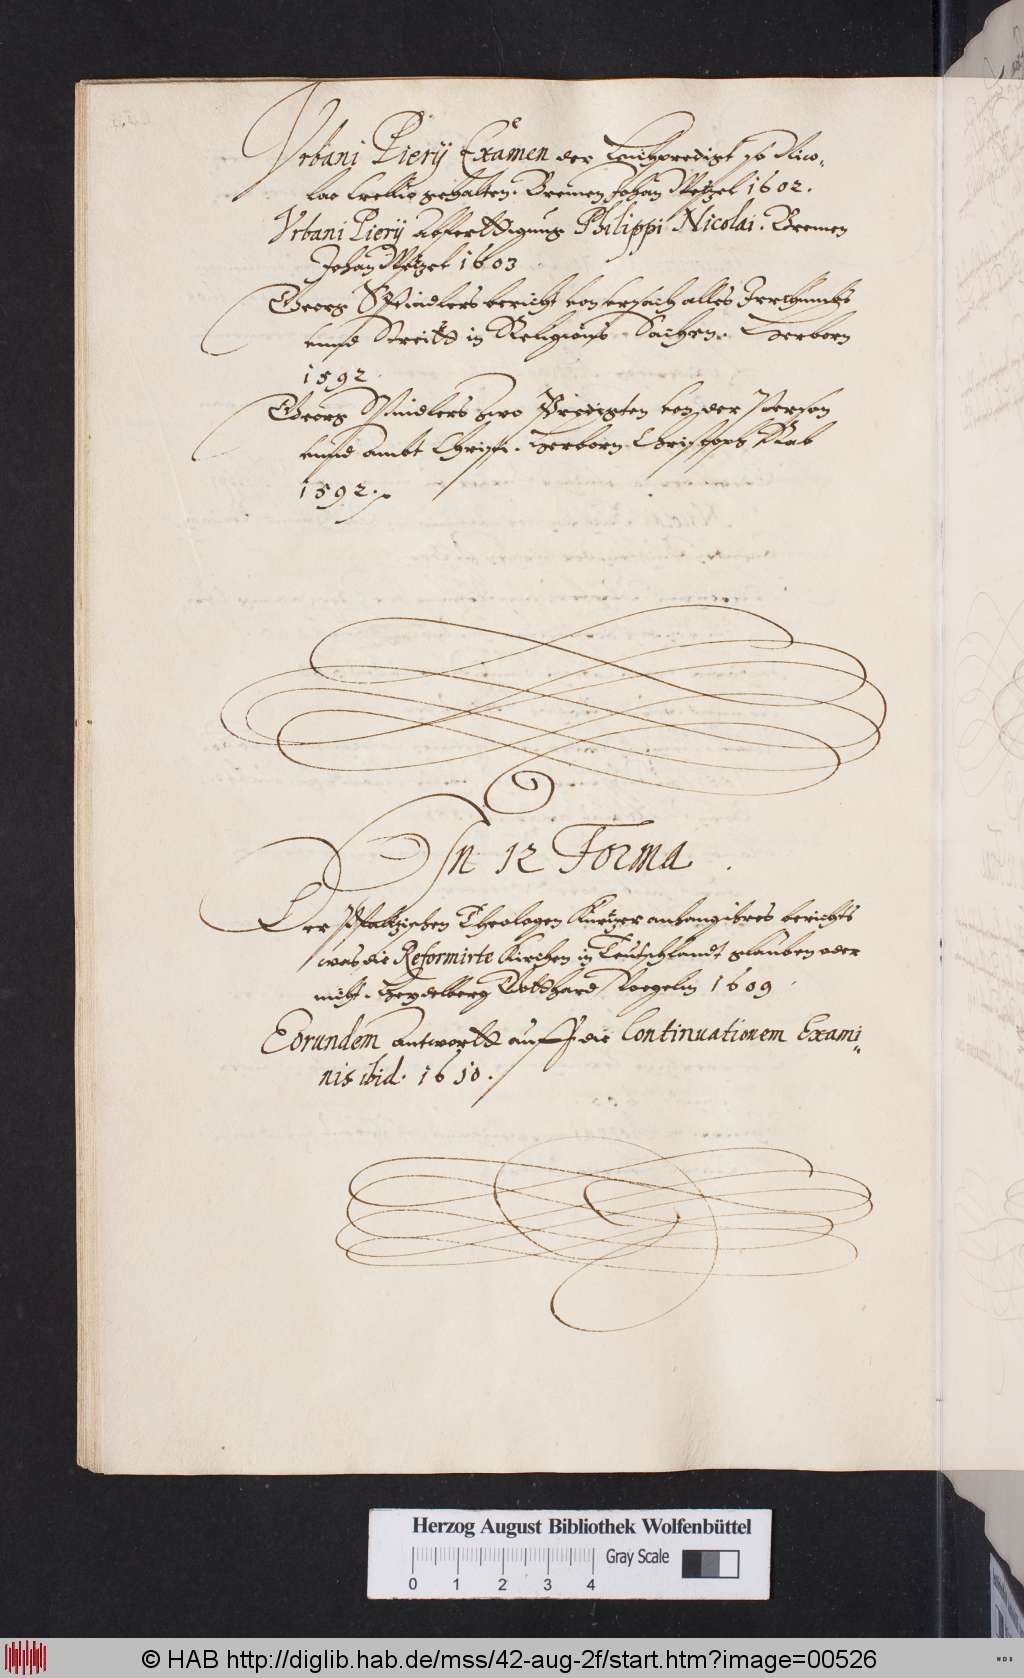 Vrbani Pierij Examen der Leichpredigt so Nico-
lao Crellio gehalten. Bremen Johan Wetzel 1602.
Vrbani Pierij abferttigung Philippi Nicolai. Bremen
Johan Wetzel 1603
Georg Spindlers bericht von vrsach alles Irrthumbs
vnnd Streitts in Religions Sachen. Herborn
1592.
Georg Spindlers zwo Predigten von der Person
vnnd ambt Christi. Herborn Christoph Rab
1592.
In 12 Forma.
Der Pfaltzischen Theologen Kurtzer anhang ihres berichts
was die Reformirte Kirchen in Teutschlandt glauben oder
nicht. Heydelberg Gotthard Voegelin 1609
Eorundem antwortt auff die Continuationem Exami-
nis ibid. 1610.
Herzog August Bibliothek Wolfenbüttel
Gray Scale
0 1 2 3 4
© HAB http://diglib.hab.de/mss/42-aug-2f/start.htm?image=00526